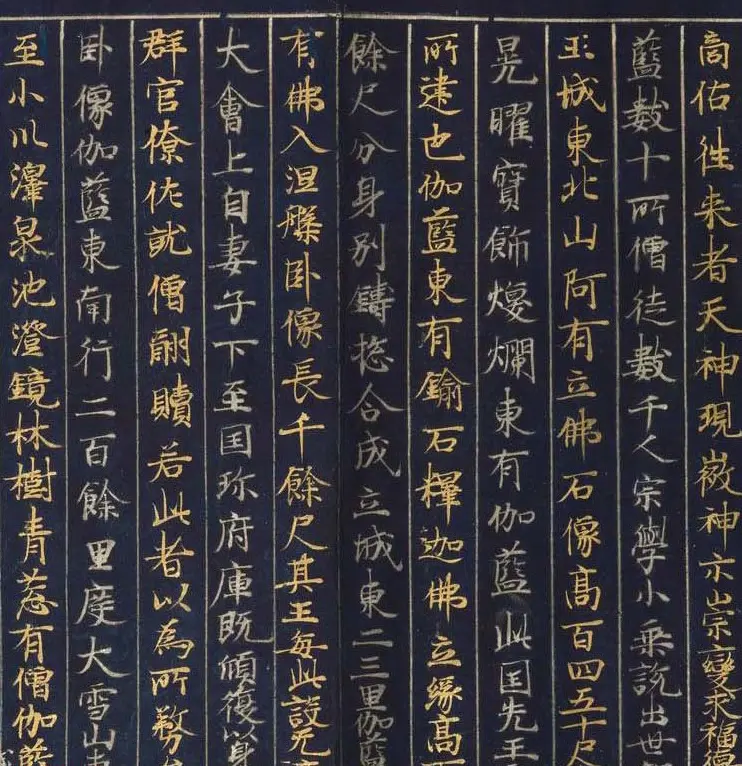 商估往来者天神現徵神示崇變求福德
藍數十所僧徒數千人宗學小乘說出世
王城東北山阿有立佛石像高百四五十尺
晃曜寶飾煥爛東有伽藍此国先王
所建也伽藍東有鍮石釋迦佛立縁高
餘尺分身別鑄捴合成立城東二三里伽藍
有佛入涅槃卧像長千餘尺其王每此設无
大會上自妻子下至国珎府庫既傾復以身
群官僚佐就僧酬贖若此者以為所務
卧像伽藍東南行二百餘里度大雪山東
至小川澤泉池澄鏡林樹青葱有僧伽藍